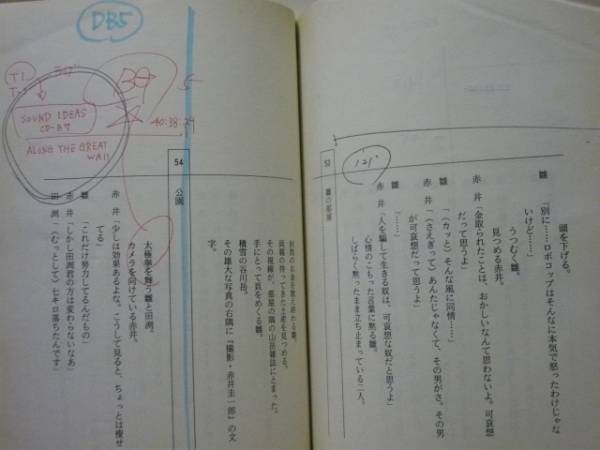 頭を下げる。
雛「別に……ロボコップはそんなに本気で怒ったわけじゃな
いけど……」
うつむく雛。
見つめる赤井。
赤井「金取られたことは、おかしいなんて思わないよ。可哀想
だって思うよ」
雛「(カッと)そんな風に同情……」
赤井「(さえぎって)あんたじゃなくて、その男がさ。その男
が可哀想だって思うよ」
雛「……」
赤井「人を騙して生きる奴は、可哀想な奴だと思うよ」
心情のこもった言葉に黙る雛。
しばらく黙ったまま立ち止まっている二人。
121"
53
雛の部屋
その視線が、部屋の隅の山岳雑誌にとまった。
手にとって頁をめくる雛。
積雪の谷川岳。
その雄大な写真の右隅に『撮影・赤井圭一郎』の文
字。
54
公園
DB5
T1
SOUND IDEAS
CD-87
ALONG THE GREAT
WALL
39
5
40:38:29
太極拳を舞う雛と田渕。
カメラを向けている赤井。
赤井「少しは効果あるよな。こうして見ると、ちょっとは痩せ
てる」
雛「これだけ努力してるんだもの」
赤井「しかし田渕君の方は変わらないなあ」
田渕「(むっとして)七キロ落ちたんです」